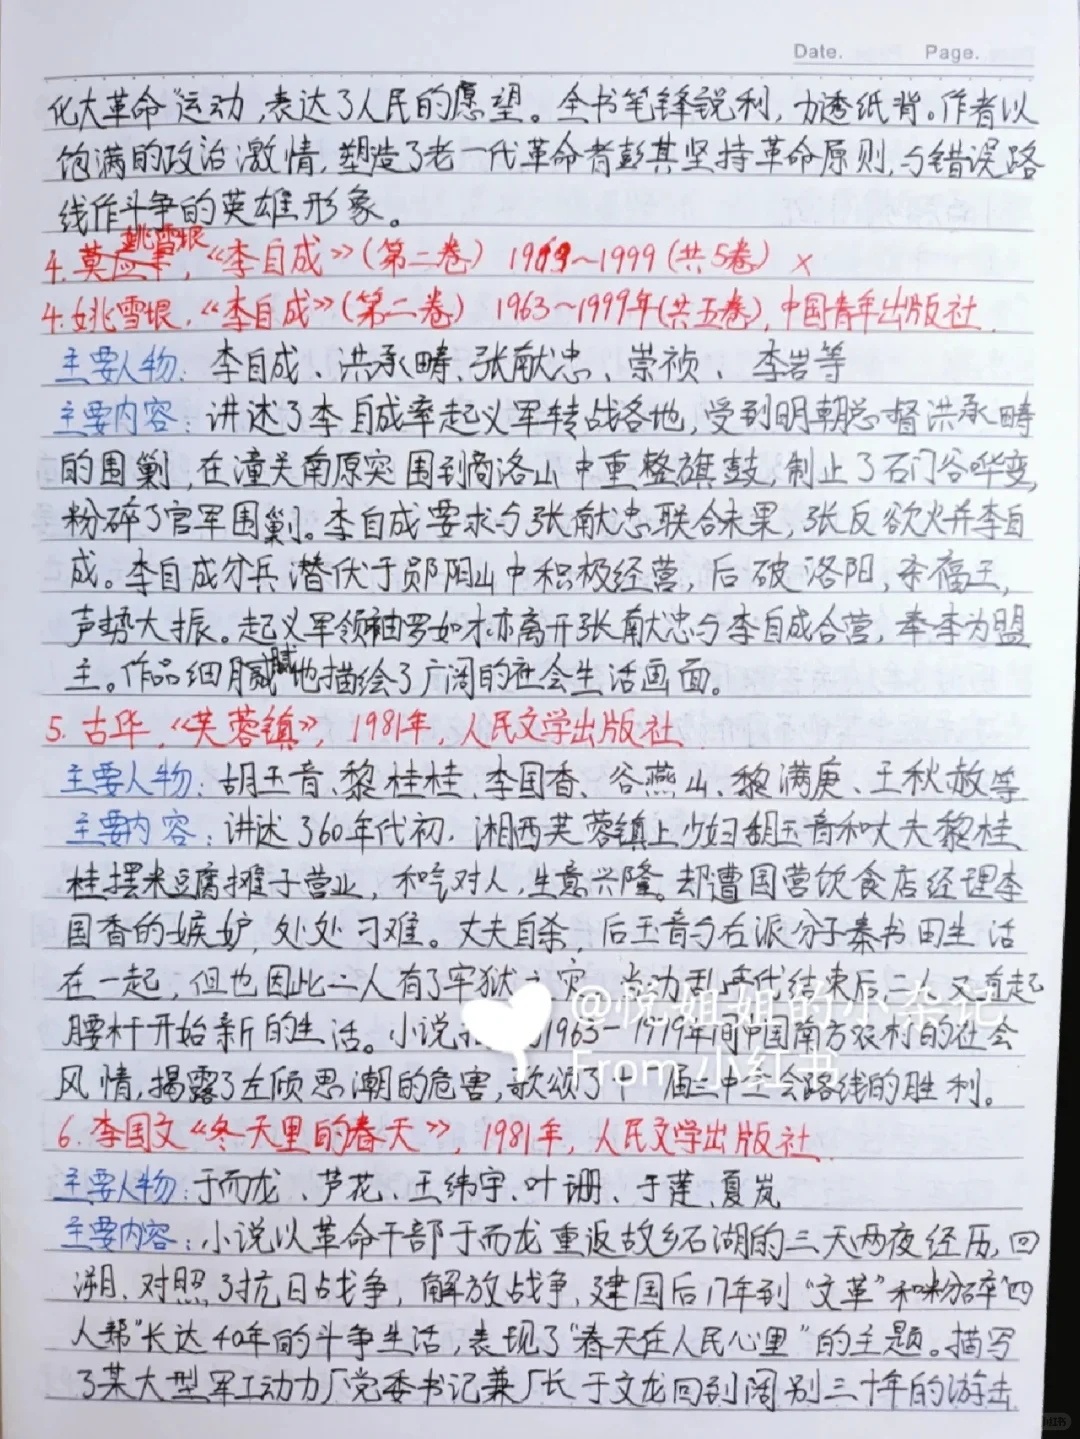 Date. Page.
化大革命"运动,表达了人民的愿望。全书笔锋锐利,力透纸背。作者以
饱满的政治激情,塑造了老一代革命者彭其坚持革命原则,与错误路
线作斗争的英雄形象。
姚雪垠
4.莫应丰,《李自成》(第二卷) 1963~1999(共5卷) ×
4.姚雪垠,《李自成》(第二卷) 1963~1999年(共五卷),中国青年出版社.
主要人物:李自成、洪承畴、张献忠、崇祯、李岩等
主要内容:讲述了李自成率起义军转战各地,受到明朝总督洪承畴
的围剿,在潼关南原突围到商洛山中重整旗鼓,制止了石门谷哗变,
粉碎了官军围剿。李自成要求与张献忠联合未果,张反欲火并李自
成。李自成分兵潜伏于郧阳山中积极经营,后破洛阳,杀福王,
声势大振。起义军领袖罗如才亦离开张献忠与李自成合营,奉李为盟
主。作品细腻地描绘了广阔的社会生活画面。
5.古华,《芙蓉镇》,1981年,人民文学出版社.
主要人物:胡玉音、黎桂桂、李国香、谷燕山、黎满庚、王秋赦等
主要内容:讲述了60年代初,湘西芙蓉镇上少妇胡玉音和丈夫黎桂
桂摆米豆腐摊子营业,和气对人,生意兴隆。却遭国营饮食店经理李
国香的嫉妒,处处刁难。丈夫自杀,后玉音与右派分子秦书田生活
在一起,但也因此二人有了牢狱之灾。当动乱年代结束后,二人又直起
腰杆开始新的生活。小说 1963-1979年间中国南方农村的社会
风情,揭露了左倾思潮的危害,歌颂了十一届三中全会路线的胜利。
@悦姐姐的小杂记
From 小红书
6.李国文《冬天里的春天》,1981年,人民文学出版社.
主要人物:于而龙、芦花、王纬宇、叶珊、于莲、夏岚
主要内容:小说以革命干部于而龙重返故乡石湖的三天两夜经历,回
溯、对照了抗日战争,解放战争,建国后17年到"文革"和粉碎"四
人帮"长达40年的斗争生活,表现了"春天在人民心里"的主题。描写
了某大型军工动力厂党委书记兼厂长于文龙回到阔别三十年的游击